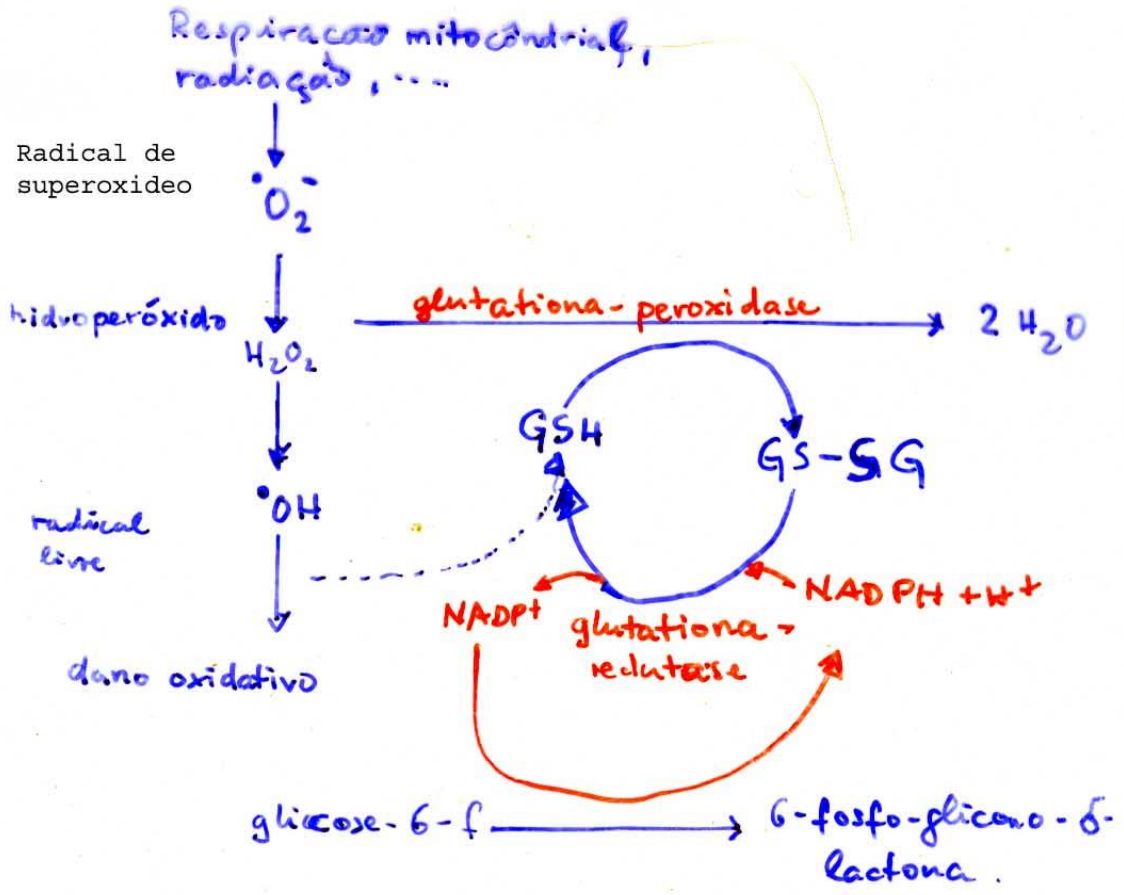 Respiração mitocôndrial,
radiação, ....
Radical de
superoxideo
•O2-
hidroperóxido
H2O2
glutationa-peroxidase
2 H2O
GSH
GS-SG
•OH
radical
livre
NADP+
NADPH + H+
glutationa-
redutase
dano oxidativo
glicose-6-f
6-fosfo-glicono-δ-
lactona.